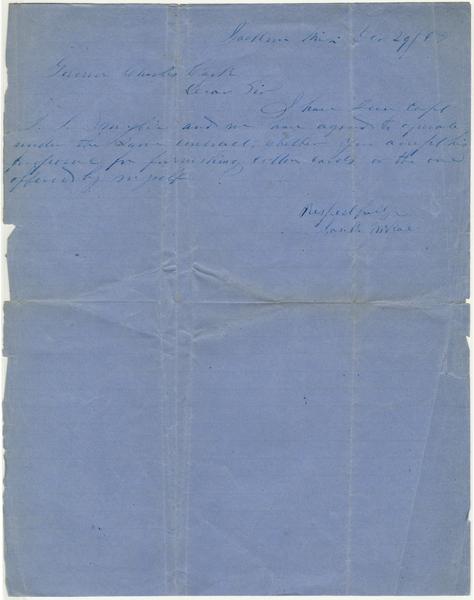 Jackson Miss Dec 29/63
Governor Charles Clark
Dear Sir
I have seen Capt
and we are agreed to operate
under the same contract, whether you accept his
proposal for furnishing cotton cards or the one
offered by myself
Respectfully